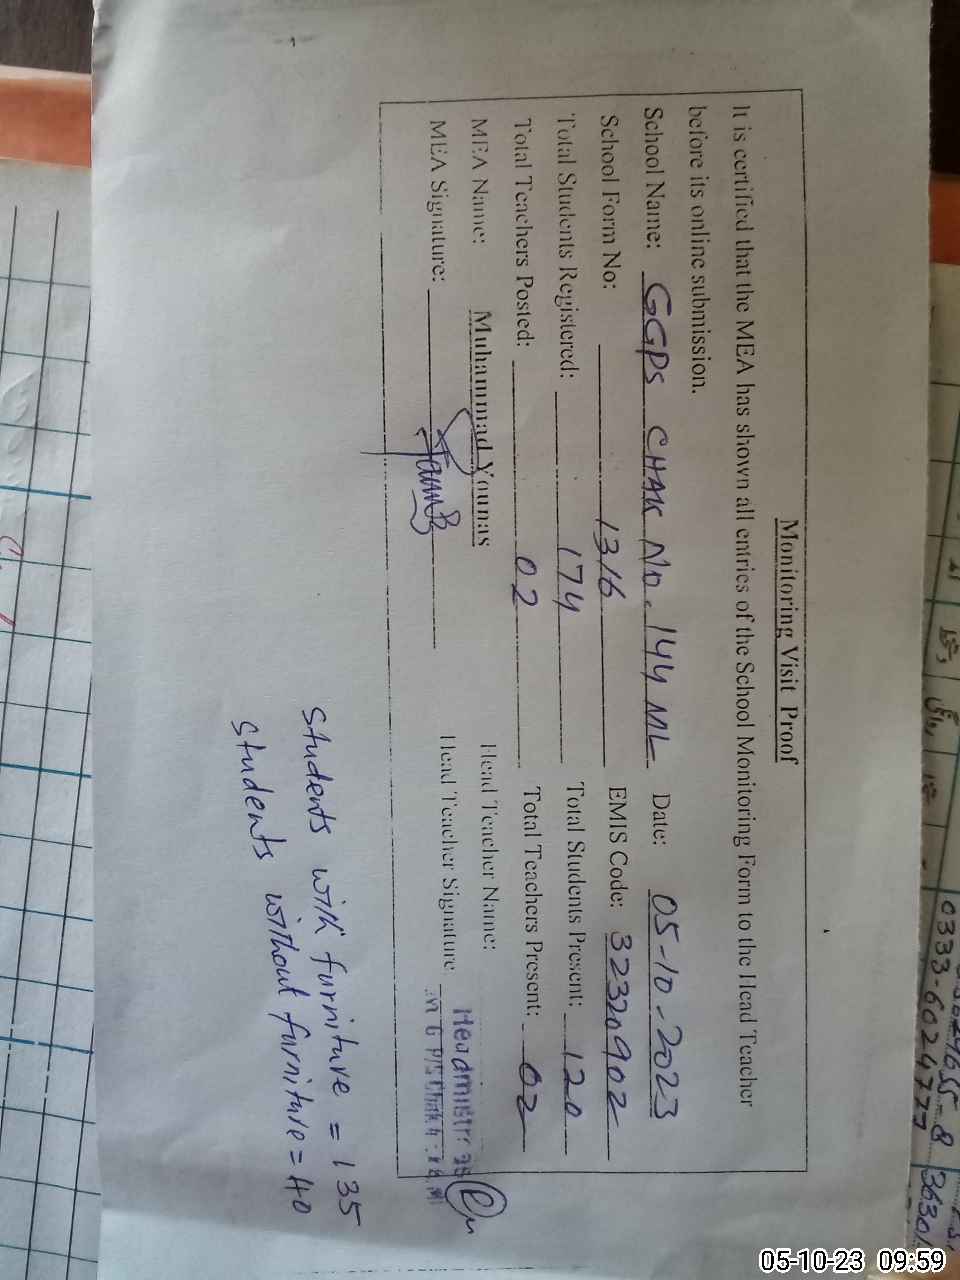 Monitoring Visit Proof
It is certified that the MEA has shown all entries of the School Monitoring Form to the Head Teacher
before its online submission.
School Name: GGPS CHAK No. 144 ML Date: 05-10-2023
School Form No: 1316 EMIS Code: 32320902
Total Students Registered: 174 Total Students Present: 120
Total Teachers Posted: 02 Total Teachers Present: 02
MEA Name: Muhammad Younas Head Teacher Name:
MEA Signature: Head Teacher Signature
Students with furniture = 135
Students without furniture = 40
0333-6024777
05-10-23 09:59